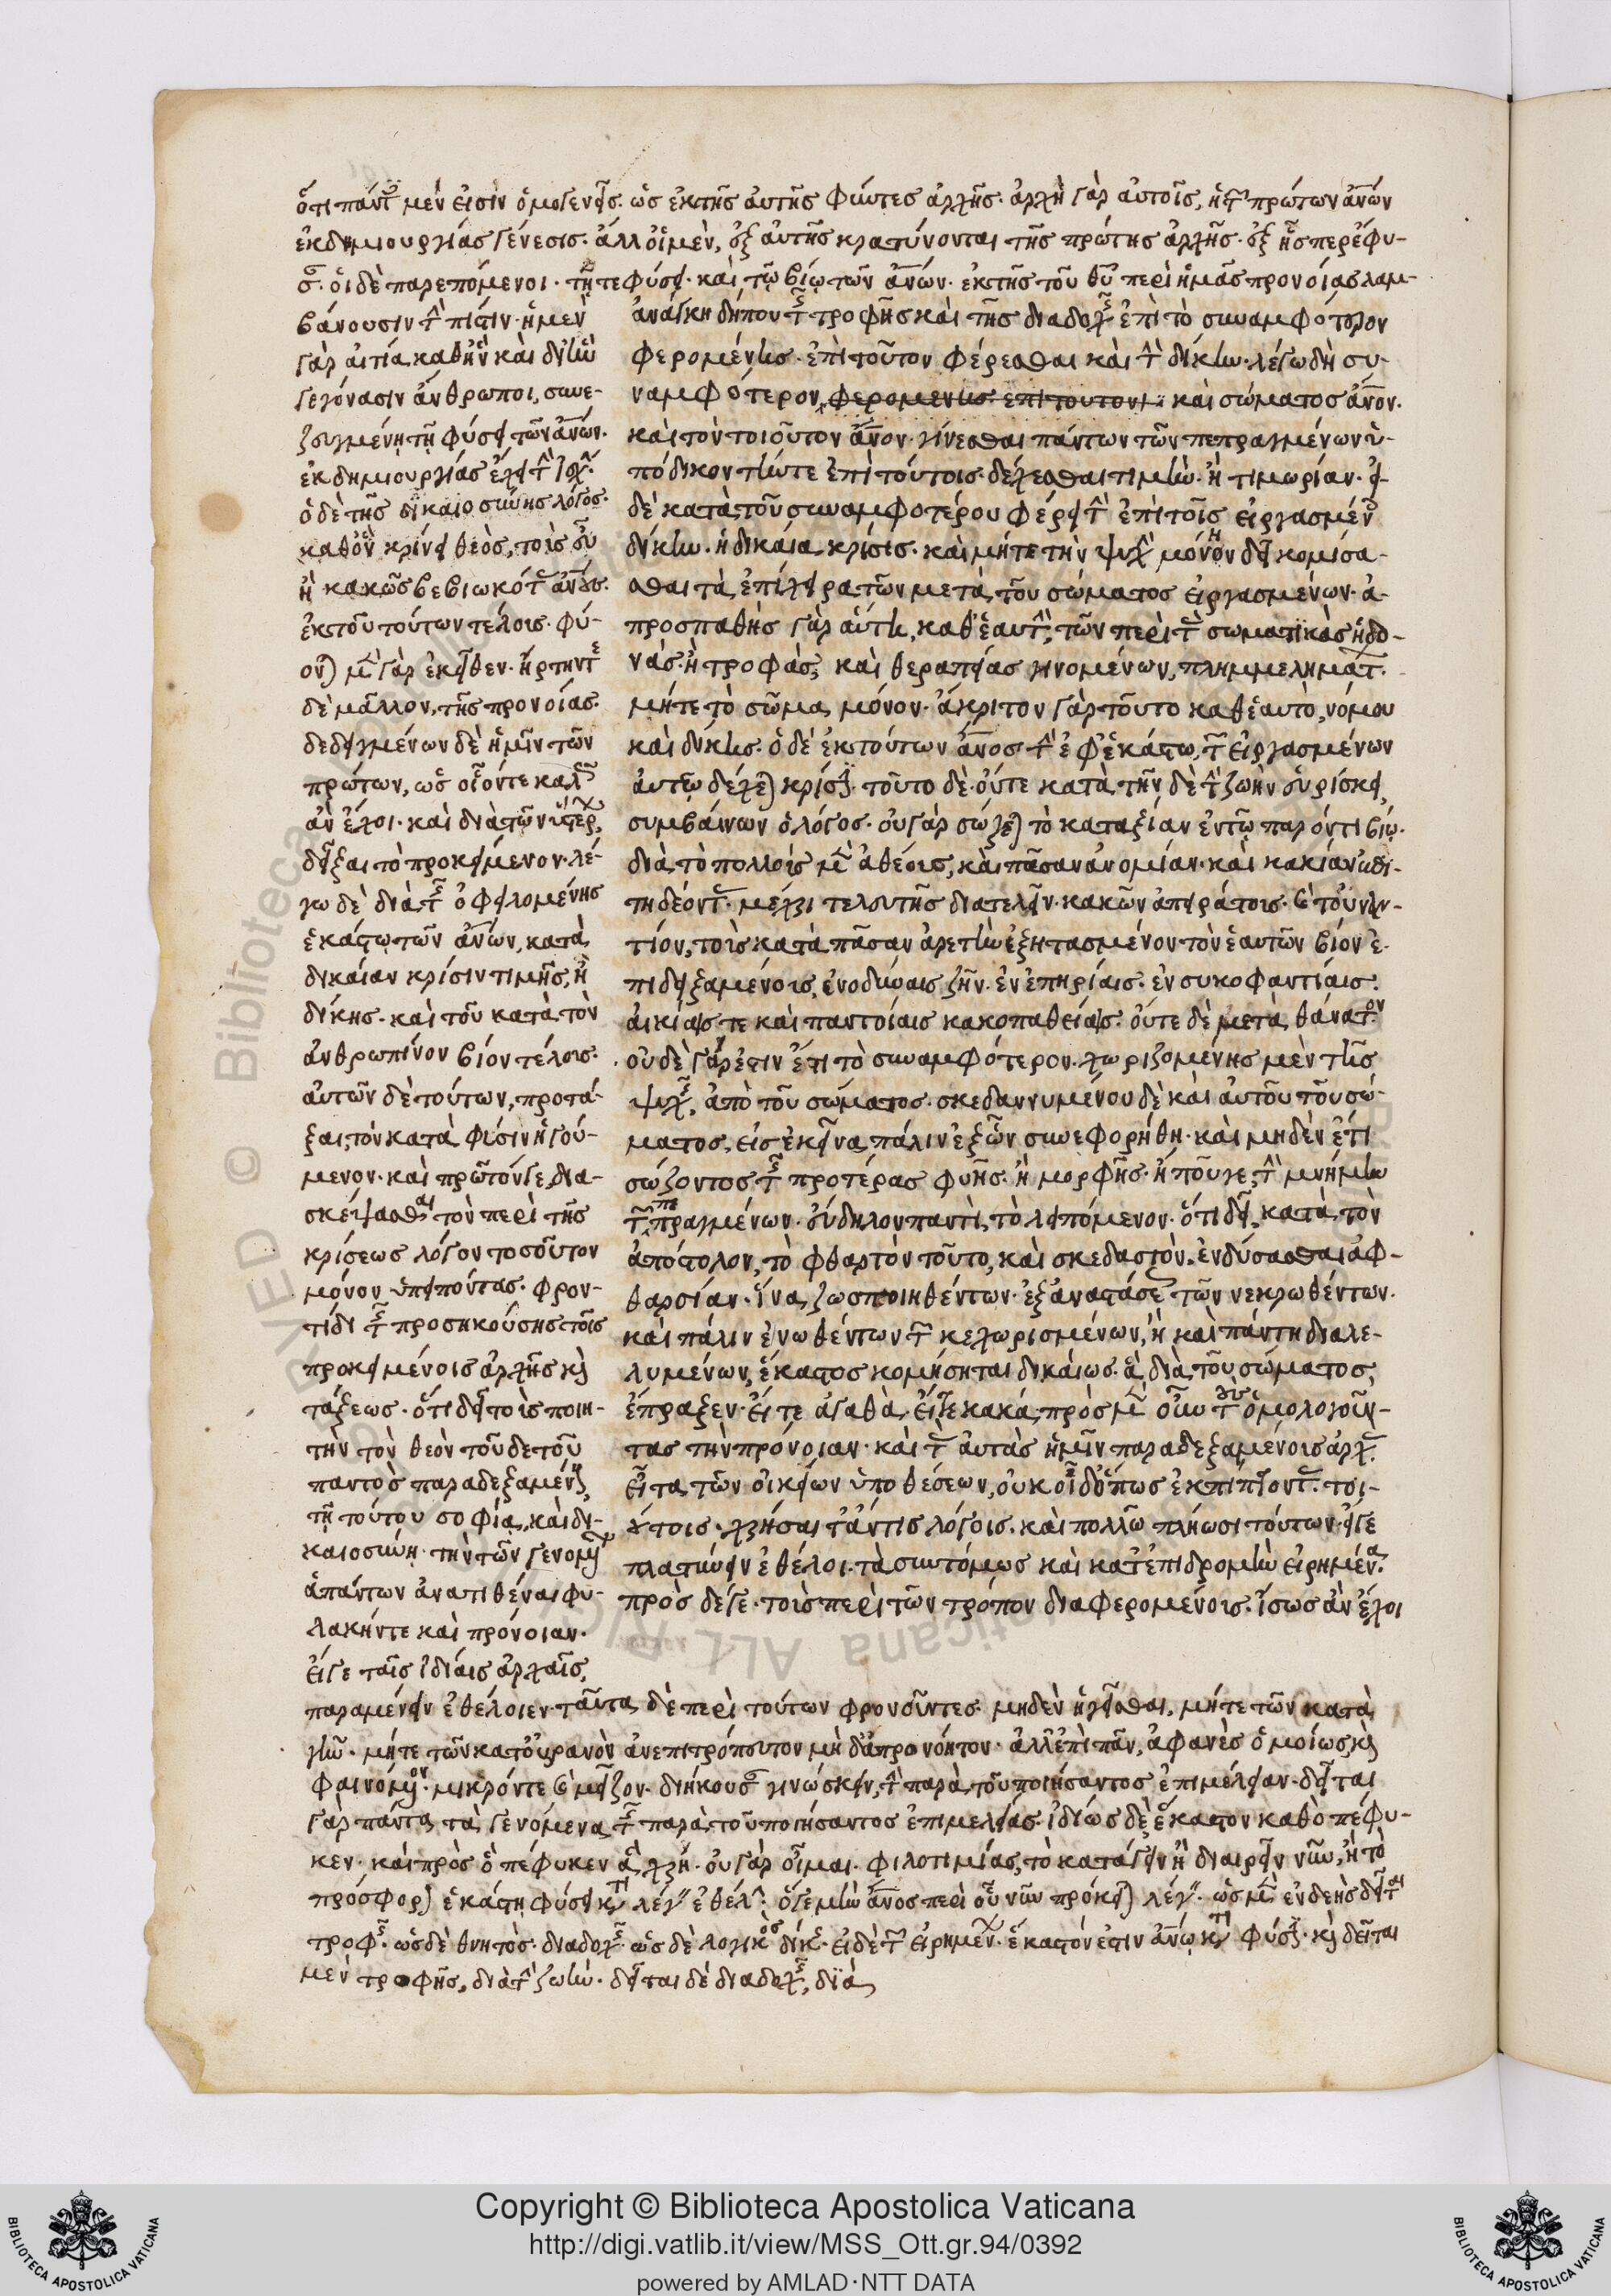 ὅτι πάντ μὲν εἰσὶν ὁμογενεῖς. ὡς ἐκ τῆς αὐτῆς φύντες ἀρχῆς. ἀρχὴ γὰρ αὐτοῖς, ἡ τ πρώτων ἀνῶν
ἐκ δημιουργίας γένεσις. ἀλλ οἱ μὲν, ἐξ αὐτῆς κρατύνονται τῆς πρώτης ἀρχῆς. ἐξ ἧσπερ ἔφυ-
σ. οἱ δὲ παρεπόμενοι. τῇ τε φύσει. καὶ τῷ βίῳ τῶν ἀνῶν. ἐκ τῆς τοῦ θυ περὶ ἡμᾶς προνοίας λαμ-
βάνουσιν τ πίστιν. ἡ μὲν
γὰρ αἰτία καθ ἣν καὶ δι ἣν
γεγόνασιν ἄνθρωποι, συνε-
ζευγμένη τῇ φύσει τῶν ἀνῶν.
ἐκ δημιουργίας ἔχει τ ἰσχ.
ὁ δὲ τῆς δικαιοσύνης λόγος.
καθ ὃν κρίνει θεὸς, τοὺς εὖ
ἢ κακῶς βεβιωκότ ἀνους.
ἐκ τοῦ τούτων τέλους. φύ-
ον μ γὰρ ἐκεῖθεν. ἤρτηντ
δὲ μᾶλλον, τῆς προνοίας.
δεδειγμένων δὲ ἡμῖν τῶν
πρώτων, ὡς οἷόν τε καλ
ἂν ἔχοι. καὶ διὰ τῶν ὑστέρ
δεῖξαι τὸ προκείμενον. λέ-
γω δὲ διὰ τ ὀφειλομένης
ἑκάστῳ τῶν ἀνῶν, κατὰ
δικαίαν κρίσιν τιμῆς, ἢ
δίκης. καὶ τοῦ κατὰ τὸν
ἀνθρώπινον βίον τέλους.
αὐτῶν δὲ τούτων, προτά-
ξαι, τὸν κατὰ φύσιν ἡγού-
μενον. καὶ πρῶτόν γε, δια-
σκέψασθαι τὸν περὶ τῆς
κρίσεως λόγον τοσοῦτον
μόνον ὑπειπόντας. φρον-
τίδι τ προσηκούσης τοῖς
προκειμένοις ἀρχῆς κὶ
τάξεως. ὅτι δεῖ τοὺς ποιη-
τὴν τὸν θεὸν τοῦδε τοῦ
παντὸς παραδεξαμένς,
τῇ τούτου σοφίᾳ, καὶ δι-
καιοσύνῃ. τὴν τῶν γενομ
ἁπάντων ἀνατιθέναι φυ-
λακήν τε καὶ πρόνοιαν.
εἴ γε ταῖς ἰδίαις ἀρχαῖς,
ἀνάγκη δήπου τ τροφῆς καὶ τῆς διαδοχ ἐπὶ τὸ συναμφότερον
φερομένης. ἐπὶ τοῦτον φέρεσθαι καὶ τ δίκην. λέγω δὴ συ-
ναμφότερον, φερομένης ἐπὶ τοῦτον. καὶ σώματος ἄνον.
καὶ τὸν τοιοῦτον ἄνον. γίνεσθαι πάντων τῶν πεπραγμένων ὑ-
πόδικον τήν τε ἐπὶ τούτοις. δέχεσθαι τιμὴν. ἢ τιμωρίαν. εἰ
δὲ κατὰ τοῦ συναμφοτέρου φέρει τ ἐπὶ τοῖς εἰργασμέν
δίκην. ἡ δικαία κρίσις. καὶ μήτε τὴν ψυχ μόνην δεῖ κομίσα-
σθαι τὰ ἐπίχειρα τῶν μετὰ τοῦ σώματος εἰργασμένων. ἀ-
προσπαθὴς γὰρ αὕτη, καθ ἑαυτ, τῶν περὶ τ σωματικὰς ἡδο-
νάς. ἢ τροφὰς, καὶ θεραπείας γινομένων, πλημμελημάτ.
μήτε τὸ σῶμα μόνον. ἄκριτον γὰρ τοῦτο καθ ἑαυτὸ, νόμου
καὶ δίκης. ὁ δὲ ἐκ τούτων ἄνος. τ ἐφ ἑκάστῳ, τ εἰργασμένων
αὐτῷ δέχε κρίσ. τοῦτο δὲ οὔτε κατὰ τὴν δὲ τ ζωὴν εὑρίσκει
συμβαίνων ὁ λόγος. οὐ γὰρ σῴζε τὸ κατ ἀξίαν ἐν τῷ παρόντι βίῳ.
διὰ τὸ πολλοὺς μ ἀθέους, καὶ πᾶσαν ἀνομίαν. καὶ κακίαν ἐπι-
τηδέοντ. μέχρι τελευτῆς διατελεῖν. κακῶν ἀπειράτους. κ τοὐναν-
τίον, τοὺς κατὰ πᾶσαν ἀρετὴν ἐξητασμένον τὸν ἑαυτῶν βίον ἐ-
πιδειξαμένους, ἐν ὀδύναις ζῆν. ἐν ἐπηρίαις. ἐν συκοφαντίαις.
αἰκίαις τε καὶ παντοίαις κακοπαθείαις. οὔτε δὲ μετὰ θάνατον.
οὐδὲ γὰρ ἐστιν ἔτι τὸ συναμφότερον. χωριζομένης μὲν τῆς
ψυχ, ἀπὸ τοῦ σώματος. σκεδαννυμένου δὲ καὶ αὐτοῦ τοῦ σώ-
ματος, εἰς ἐκεῖνα πάλιν ἐξ ὧν συνεφορήθη. καὶ μηδὲν ἔτι
σώζοντος τ προτέρας φυῆς. ἢ μορφῆς. ἢ πού γε, τ μνήμην
τ πεπραγμένων. εὔδηλον παντὶ, τὸ λειπόμενον. ὅτι δεῖ, κατὰ τὸν
ἀπόστολον, τὸ φθαρτὸν τοῦτο, καὶ σκεδαστὸν. ἐνδύσασθαι ἀφ-
θαρσίαν. ἵνα ζωοποιηθέντων. ἐξ ἀναστάσε τῶν νεκρωθέντων.
καὶ πάλιν ἑνωθέντων τ κεχωρισμένων, ἢ καὶ πάντη διαλε-
λυμένων, ἕκαστος κομήσηται δικαίως. ἃ διὰ τοῦ σώματος,
ἔπραξεν. εἴτε ἀγαθὰ εἴτε κακά. πρὸς μ οὖν τ ὁμολογοῦν-
τας τὴν πρόνοιαν. καὶ τ αὐτὰς ἡμῖν παραδεξαμένους ἀρχ
εἶτα τῶν οἰκείων ὑποθέσεων, οὐκ οἶδ ὅπως ἐκπίπτοντ. τοι-
ούτοις. χρήσαι τ ἄν τις λόγοις. καὶ πολλῷ πλείωσι τούτων. εἴ γε
πλατύνειν ἐθέλοι. τὰ συντόμως καὶ κατ ἐπιδρομὴν εἰρημένα.
πρὸς δέ γε. τοὺς περὶ τῶν τρόπον διαφερομένους. ἴσως ἂν ἔχοι
παραμένειν ἐθέλοιεν. ταῦτα δὲ περὶ τούτων φρονοῦντες. μηδὲν ἡγεῖσθαι, μήτε τῶν κατὰ
γῆν. μήτε τῶν κατ οὐρανὸν ἀνεπιτρόπευτον μὴ δ ἀπρονόητον. ἀλλ ἐπὶ πᾶν, ἀφανὲς ὁμοίως κὶ
φαινόμον. μικρόν τε κ μεῖζον. διήκουσ γινώσκειν, τ παρὰ τοῦ ποιήσαντος ἐπιμέλειαν. δεῖται
γὰρ πάντα τὰ γενόμενα τ παρὰ τοῦ ποιήσαντος ἐπιμελείας. ἰδίως δὲ ἕκαστον καθὸ πέφυ-
κεν. καὶ πρὸς ὃ πέφυκεν χρή. οὐ γὰρ οἶμαι. φιλοτιμίας, τὸ κατάγειν ἢ διαιρεῖν νῦν, ἢ τὸ
πρόσφορ ἑκάστῃ φύσει κ λέγ ἐθέλ. ὅ γε μὴν ἄνος περὶ οὗ νῦν πρόκει λέγ. ὡς μ ἐνδεὴς δεῖται
τροφ. ὡς δὲ θνητὸς. διαδοχ. ὡς δὲ λογικὸς δίκ. εἰ δὲ τ εἰρημέν. ἕκαστόν ἐστιν ἀνῳ κ φύσ. κὶ δεῖται
μὲν τροφῆς, διὰ τ ζωὴν. δεῖται δὲ διαδοχ, διὰ
Copyright © Biblioteca Apostolica Vaticana
http://digi.vatlib.it/view/MSS_Ott.gr.94/0392
powered by AMLAD·NTT DATA